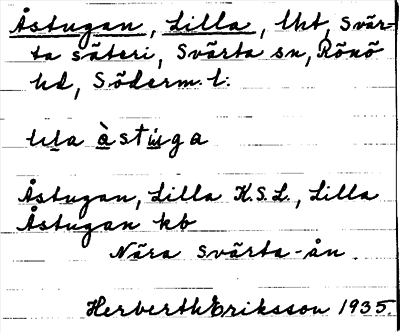 Åstugan, Lilla, lht, Svär-
ta säteri, Svärta sn, Rönö
hd, Söderm. l.
lıla àstùga
Åstugan, Lilla K.S.L., Lilla
Åstugan kb
Nära Svärta-ån.
Herberth Eriksson 1935.